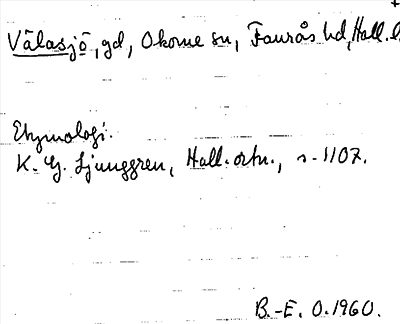 Välasjö, gd, Okome sn, Faurås hd, Hall. l.
Etymologi.
K. G. Ljunggren, Hall. ortn., s. 1107.
B.-E. O. 1960.